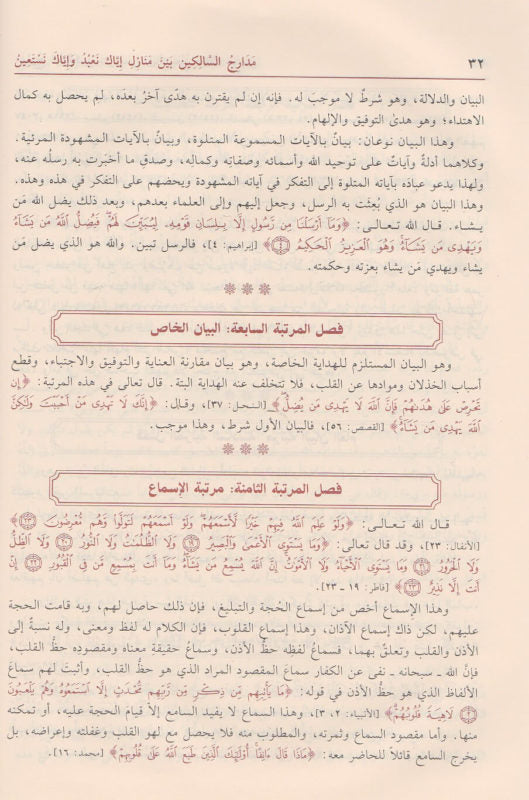 ٣٢ مَدَارِجُ السَّالِكِين بَيْنَ مَنَازِلِ إيَّاكَ نَعْبُدُ وَإيَّاكَ نَسْتَعِينُ
البيان والدلالة، وهو شرطٌ لا موجبَ له. فإنه إن لم يقترن به هدًى آخرُ بعدَه، لم يحصل به كمال
الاهتداء؛ وهو هدى التوفيق والإلهام.
وهذا البيان نوعان: بيانٌ بالآيات المسموعة المتلوة، وبيانٌ بالآيات المشهودة المرئية.
وكلاهما أدلةٌ وآياتٌ على توحيد الله وأسمائه وصفاتِه وكمالِه، وصدقِ ما أخبَرت به رسلُه عنه،
ولهذا يدعو عبادَه بآياته المتلوة إلى التفكر في آياته المشهودة ويحضهم على التفكر في هذه وهذه.
وهذا البيان هو الذي بُعِثت به الرسل، وجعل إليهم وإلى العلماء بعدهم، وبعد ذلك يضل الله مَن
يشـاء. قـال الله تـعـالـى: ﴿وَمَآ أَرۡسَلۡنَا مِن رَّسُولٍ إِلَّا بِلِسَانِ قَوۡمِهِۦ لِيُبَيِّنَ لَهُمۡۖ فَيُضِلُّ ٱللَّهُ مَن يَشَآءُ
وَيَهۡدِي مَن يَشَآءُۚ وَهُوَ ٱلۡعَزِيزُ ٱلۡحَكِيمُ ٤﴾ [إبراهيم: ٤]، فالرسل تبين. والله هو الذي يضل مَن
يشاء ويهدي مَن يشاء بعزته وحكمته.
***
فصل المرتبة السابعة: البيان الخاص
وهو البيان المستلزم للهداية الخاصة، وهو بيان مقارنة العناية والتوفيق والاجتباء، وقطع
أسباب الخذلان وموادها عن القلب، فلا تتخلف عنه الهداية البتة. قال تعالى في هذه المرتبة: ﴿إِن
تَحۡرِصۡ عَلَىٰ هُدَىٰهُمۡ فَإِنَّ ٱللَّهَ لَا يَهۡدِي مَن يُضِلُّۖ﴾ [النحل: ٣٧]، وقال: ﴿إِنَّكَ لَا تَهۡدِي مَنۡ أَحۡبَبۡتَ وَلَٰكِنَّ
ٱللَّهَ يَهۡدِي مَن يَشَآءُۚ﴾ [القصص: ٥٦]، فالبيان الأول شرط، وهذا موجب.
***
فصل المرتبة الثامنة: مرتبة الإسماع
قـال الله تـعـالـى: ﴿وَلَوۡ عَلِمَ ٱللَّهُ فِيهِمۡ خَيۡرٗا لَّأَسۡمَعَهُمۡۖ وَلَوۡ أَسۡمَعَهُمۡ لَتَوَلَّواْ وَّهُم مُّعۡرِضُونَ ٢٣﴾
[الأنفال: ٢٣]، وقد قال تعالى: ﴿وَمَا يَسۡتَوِي ٱلۡأَعۡمَىٰ وَٱلۡبَصِيرُ ١٩ وَلَا ٱلظُّلُمَٰتُ وَلَا ٱلنُّورُ ٢٠ وَلَا ٱلظِّلُّ
وَلَا ٱلۡحَرُورُ ٢١ وَمَا يَسۡتَوِي ٱلۡأَحۡيَآءُ وَلَا ٱلۡأَمۡوَٰتُۚ إِنَّ ٱللَّهَ يُسۡمِعُ مَن يَشَآءُۖ وَمَآ أَنتَ بِمُسۡمِعٖ مَّن فِي ٱلۡقُبُورِ ٢٢ إِنۡ
أَنتَ إِلَّا نَذِيرٌ ٢٣﴾ [فاطر: ١٩ ـ ٢٣].
وهذا الإسماع أخص من إسماع الحُجة والتبليغ، فإن ذلك حاصل لهم، وبه قامت الحجة
عليهم، لكن ذاك إسماع الآذان، وهذا إسماع القلوب، فإن الكلام له لفظ ومعنى، وله نسبةٌ إلى
الأذن والقلب وتعلقٌ بهما، فسماعُ لفظِه حظُّ الأذن، وسماعُ حقيقةِ معناه ومقصودِه حظُّ القلب،
فإنَّ الله ـ سبحانه ـ نفى عن الكفار سماعَ المقصود المراد الذي هو حظُّ القلب، وأثبت لهم سماعَ
الألفاظ الذي هو حظُّ الأذن في قوله: ﴿مَا يَأۡتِيهِم مِّن ذِكۡرٖ مِّن رَّبِّهِم مُّحۡدَثٍ إِلَّا ٱسۡتَمَعُوهُ وَهُمۡ يَلۡعَبُونَ
٢ لَاهِيَةٗ قُلُوبُهُمۡۗ﴾ [الأنبياء: ٢، ٣]، وهذا السماع لا يفيد السامع إلا قيامَ الحجة عليه، أو تمكنه
منها. وأما مقصود السماع وثمرته، والمطلوب منه فلا يحصل مع لهو القلب وغفلته وإعراضه، بل
يخرج السامع قائلًا للحاضر معه: ﴿مَاذَا قَالَ ءَانِفًاۚ أُوْلَٰٓئِكَ ٱلَّذِينَ طَبَعَ ٱللَّهُ عَلَىٰ قُلُوبِهِمۡ﴾ [محمد: ١٦].